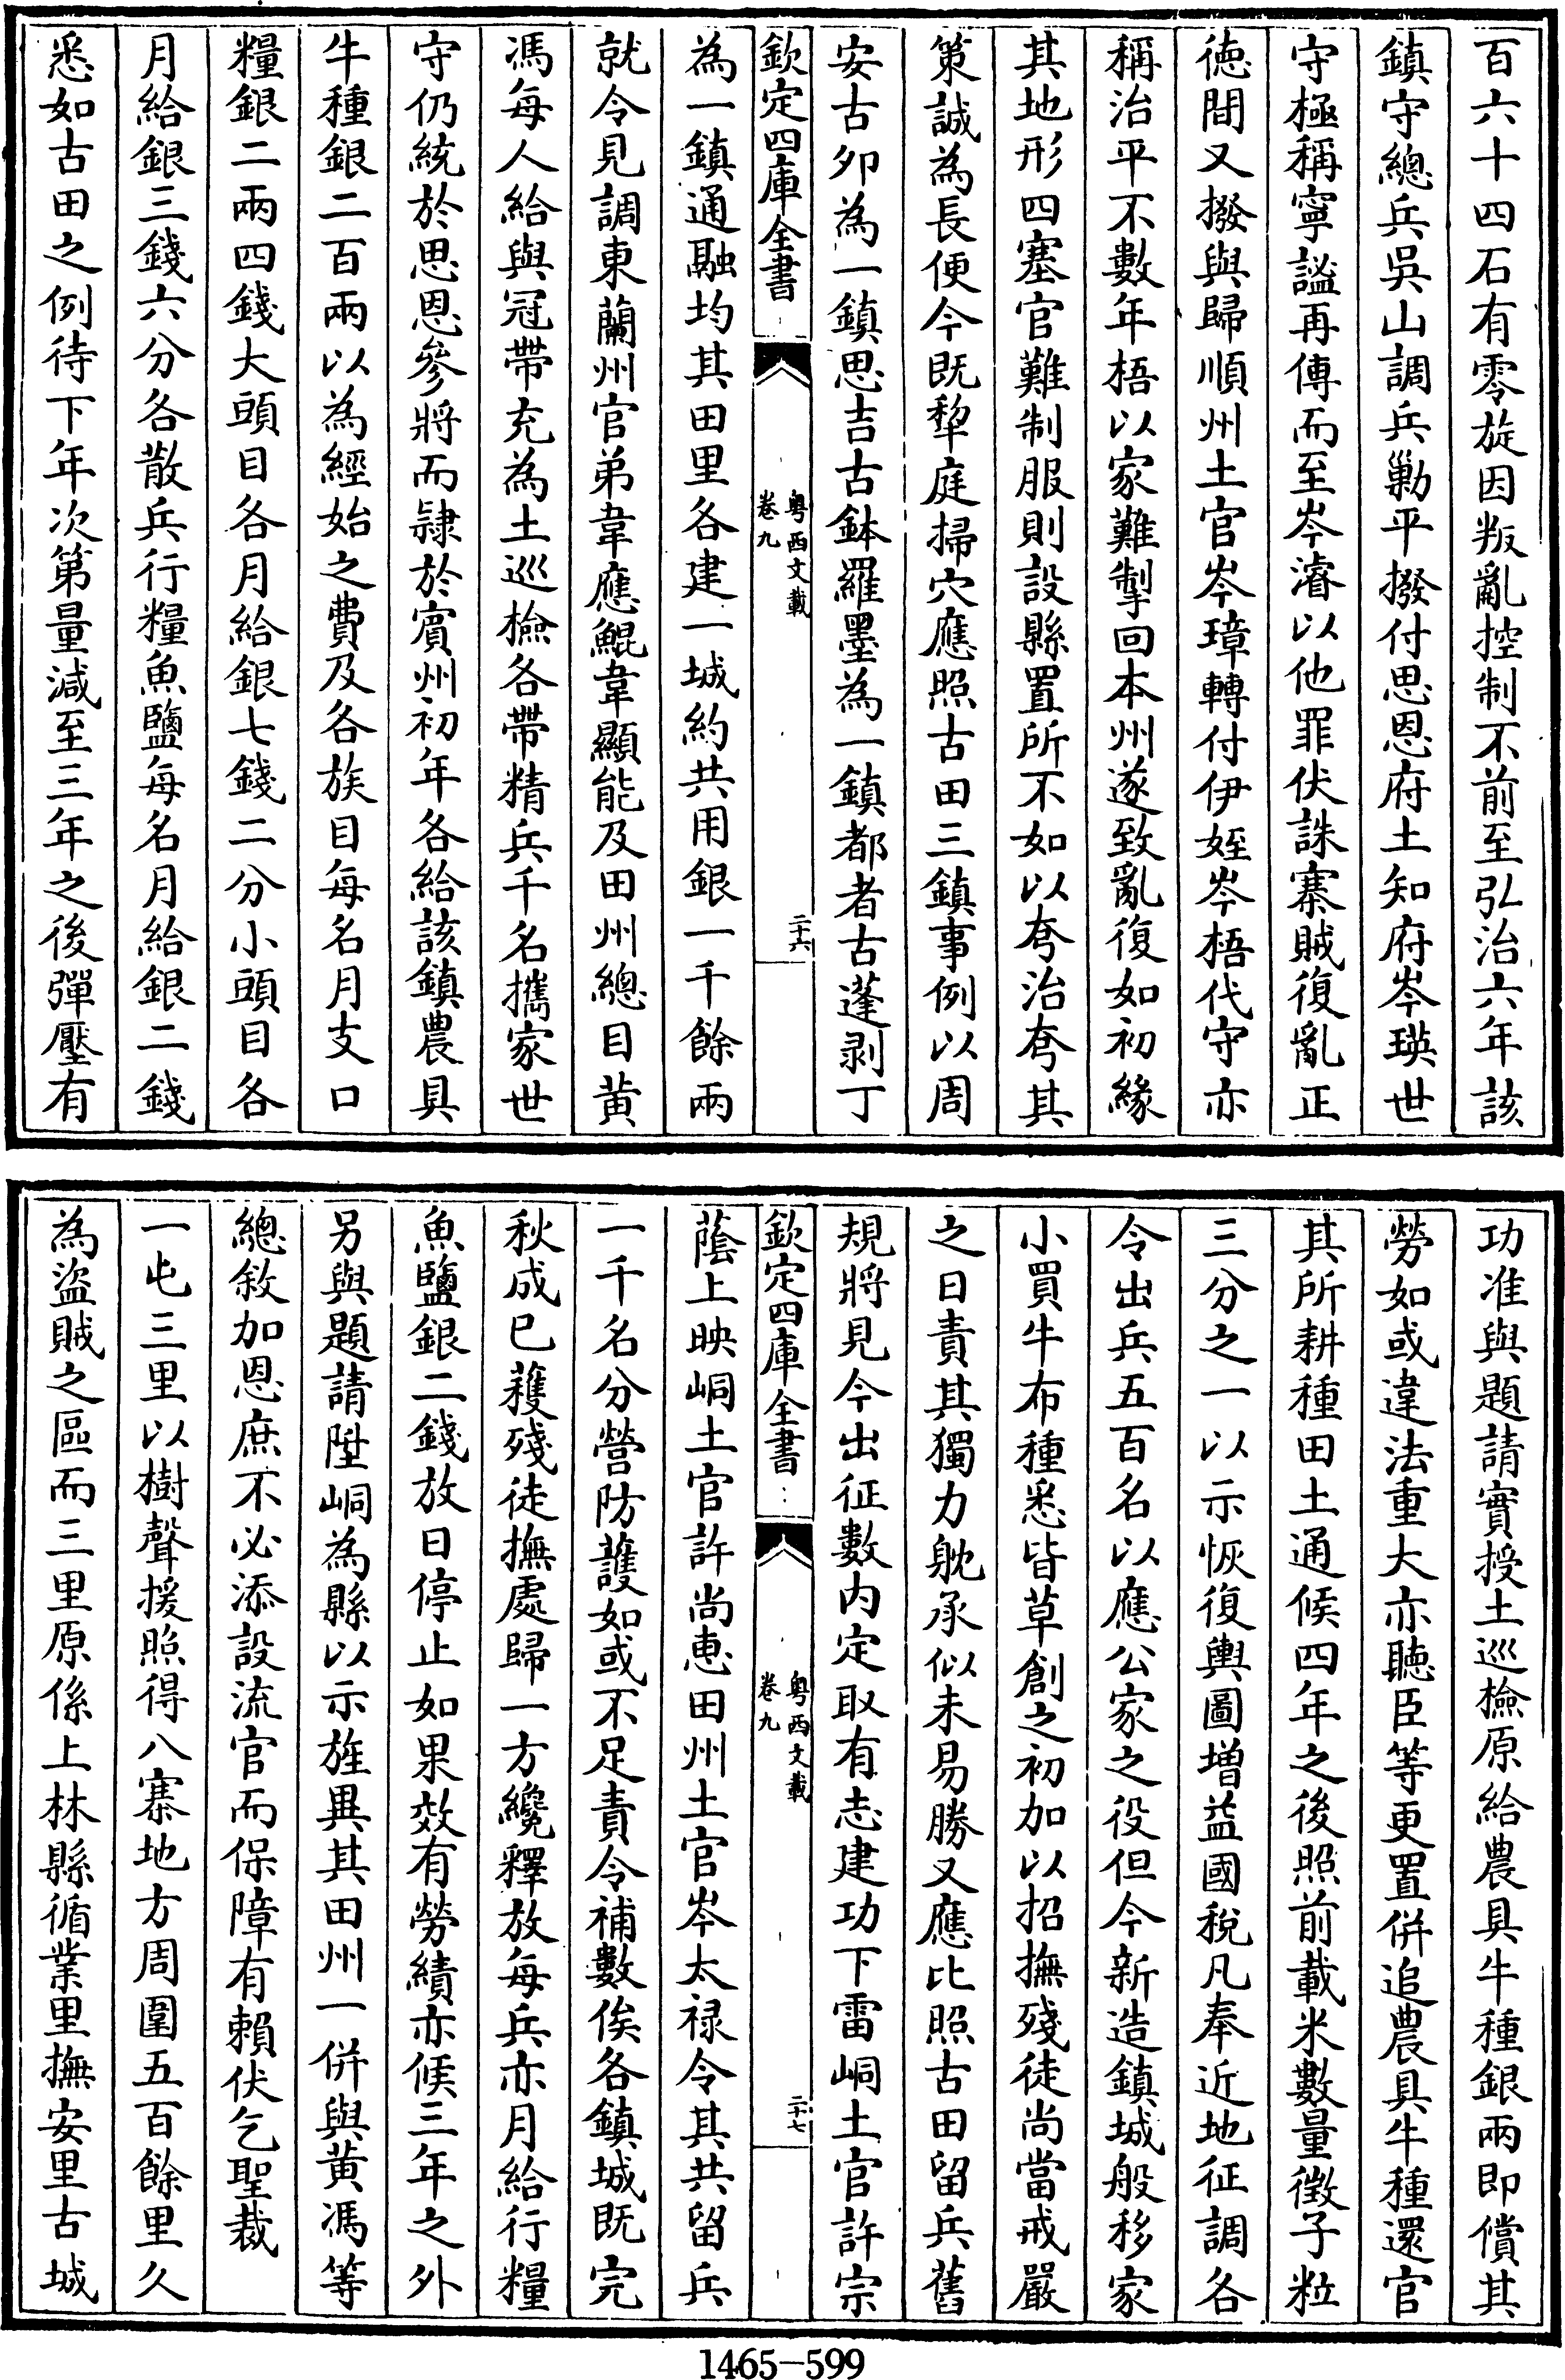 百六十四石有零旋因叛亂控制不前至弘治六年該
鎮守總兵吳山調兵勦平撥付思恩府土知府岑瑛世
守極稱寧謐再傳而至岑濬以他罪伏誅寨賊復亂正
徳間又撥與歸順州土官岑璋轉付伊姪岑梧代守亦
稱治平不數年梧以家難掣回本州遂致亂復如初緣
其地形四塞官難制服則設縣置所不如以夸治夸其
策誠為長便今既犂庭掃穴應照古田三鎮事例以周
安古卯為一鎮思吉古鉢羅墨為一鎮都者古蓬剥丁
欽定四庫全書
粤西文載
卷九
二十六
為一鎮通融均其田里各建一城約共用銀一千餘兩
就令見調東蘭州官弟韋應鯤韋顯能及田州總目黄
馮每人給與冠帶充為土巡檢各帶精兵千名攜家世
守仍統於思恩參將而隷於賓州初年各給該鎮農具
牛種銀二百兩以為經始之費及各族目每名月支口
糧銀二兩四錢大頭目各月給銀七錢二分小頭目各
月給銀三錢六分各散兵行糧魚鹽每名月給銀二錢
悉如古田之例待下年次第量減至三年之後彈壓有
功准與題請實授土巡檢原給農具牛種銀兩即償其
勞如或違法重大亦聽臣等更置併追農具牛種還官
其所耕種田土通候四年之後照前載米數量徴子粒
三分之一以示恢復輿圖增益國稅凡奉近地征調各
令出兵五百名以應公家之役但今新造鎮城般移家
小買牛布種悉皆草創之初加以招撫殘徒尚當戒嚴
之日責其獨力躭承似未易勝又應比照古田留兵舊
規將見今出征數内定取有志建功下雷峒土官許宗
欽定四庫全書
粤西文載
卷九
二十七
蔭上映峒土官許尚恵田州土官岑太禄令其共留兵
一千名分營防護如或不足責令補數俟各鎮城既完
秋成已穫殘徒撫處歸一方纔釋放每兵亦月給行糧
魚鹽銀二錢放日停止如果效有勞績亦候三年之外
另與題請陞峒為縣以示旌異其田州一併與黄馮等
總敘加恩庶不必添設流官而保障有賴伏乞聖裁
一屯三里以樹聲援照得八寨地方周圍五百餘里久
為盜賊之區而三里原係上林縣循業里撫安里古城
1465-599